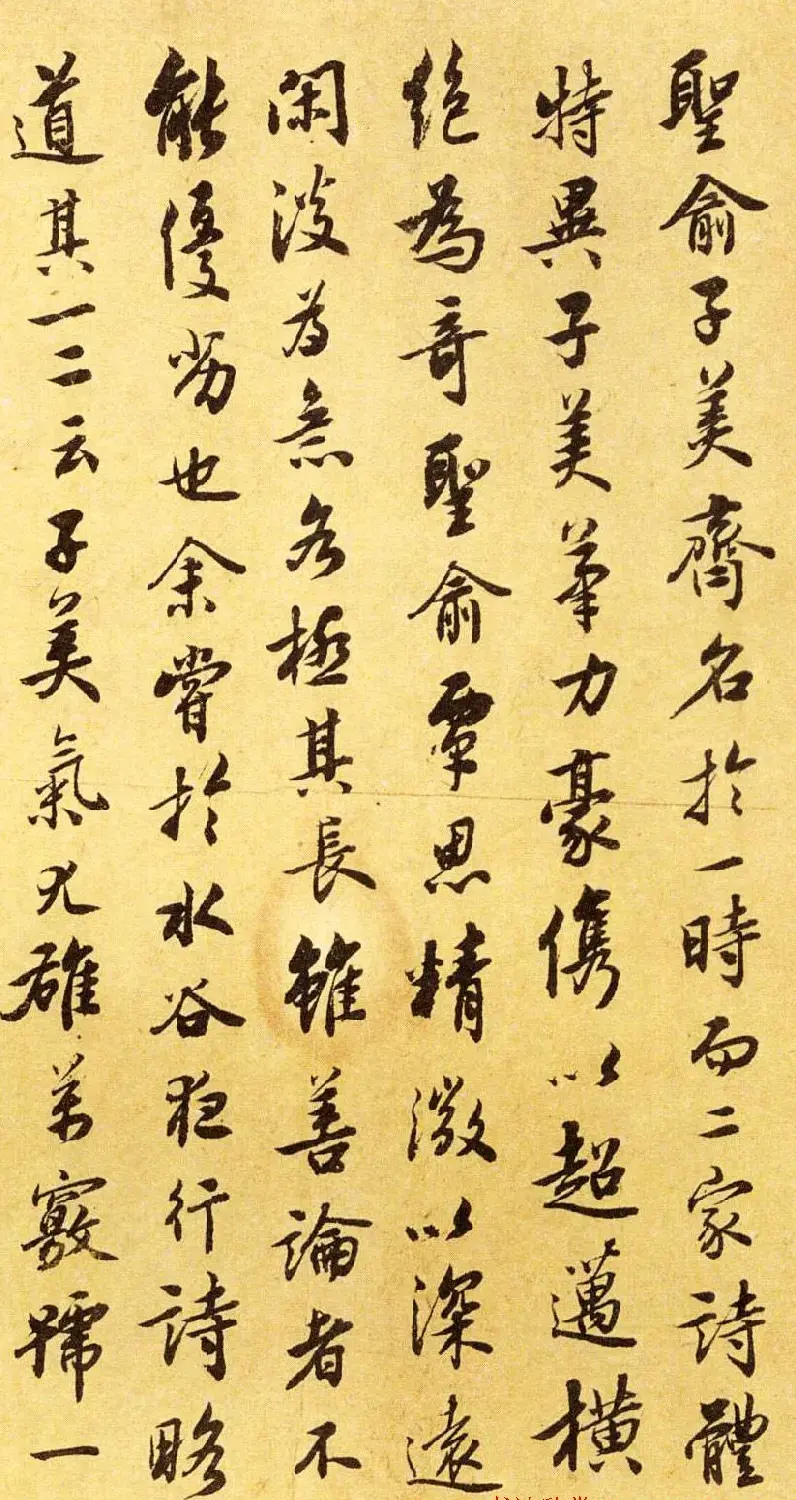 聖俞子美齊名於一時而二家詩體
特異子美筆力豪儁以超邁橫
絕為奇聖俞覃思精微以深遠
閑淡為意各極其長雖善論者不
能優劣也余嘗於水谷夜行詩略
道其一二云子美氣尤雄萬竅號一